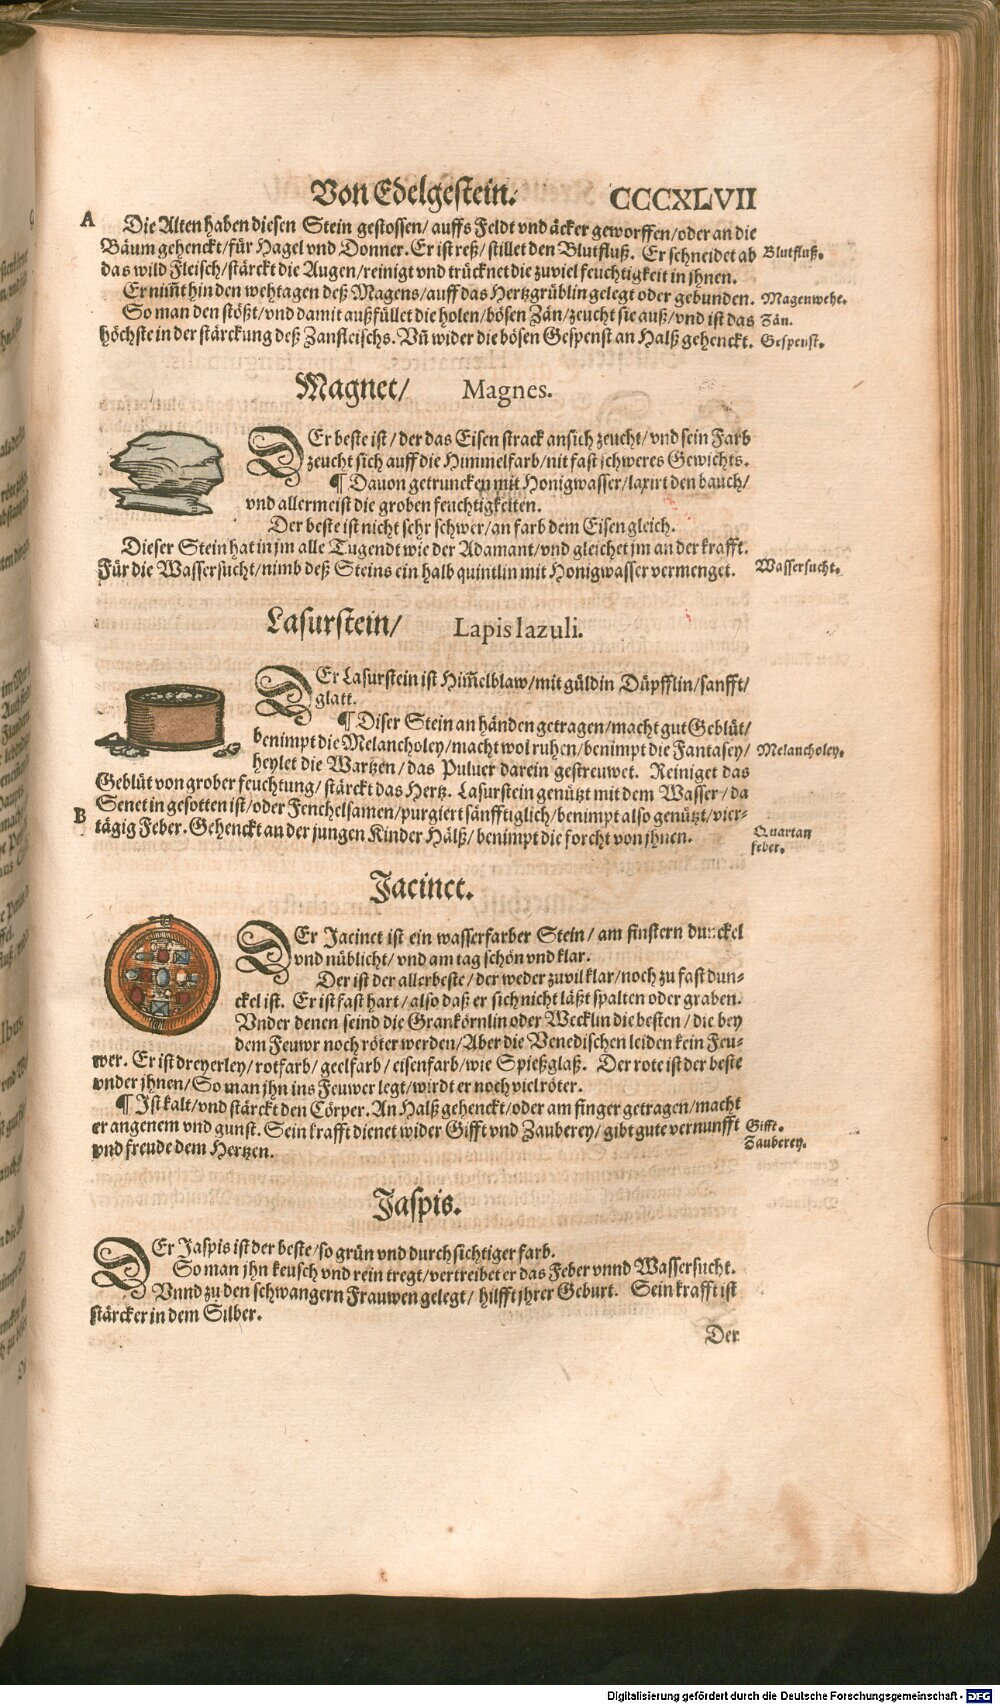 Von Edelgestein. CCCXLVII
A Die Alten haben diesen Stein gestossen/ auffs Feldt vnd äcker geworffen/ oder an die
Bäum gehenckt/ für Hagel vnd Donner. Er ist reß/ stillet den Blutfluß. Er schneidet ab Blutfluß.
das wild Fleisch/ stärckt die Augen/ reinigt vnd trücknet die zuviel feuchtigkeit in jhnen.
Er nim̄t hin den wehtagen deß Magens/ auff das Hertzgrüblin gelegt oder gebunden. Magenwehe.
So man den stößt/ vnd damit außfüllet die holen/ bösen Zän/ zeucht sie auß/ vnd ist das Zän.
höchste in der stärckung deß Zanfleischs. Vn̄ wider die bösen Gespenst an Halß gehenckt. Gespenst.
Magnet/ Magnes.
DEr beste ist/ der das Eisen strack an sich zeucht/ vnd sein Farb
zeucht sich auff die Himmelfarb/ nit fast schweres Gewichts.
¶ Dauon getruncken mit Honigwasser/ laxirt den bauch/
vnd allermeist die groben feuchtigkeiten.
Der beste ist nicht sehr schwer/ an farb dem Eisen gleich.
Dieser Stein hat in jm alle Tugendt wie der Adamant/ vnd gleichet jm an der krafft.
Für die Wassersucht/ nimb deß Steins ein halb quintlin mit Honigwasser vermenget. Wassersucht.
Lasurstein/ Lapis lazuli.
DEr Lasurstein ist Him̄elblaw/ mit güldin Düpfflin/ sanfft/
glatt.
¶ Diser Stein an händen getragen/ macht gut Geblüt/
benimpt die Melancholey/ macht wol ruhen/ benimpt die Fantasey/ Melancholey.
heylet die Wartzen/ das Puluer darein gestreuwet. Reiniget das
Geblüt von grober feuchtung/ stärckt das Hertz. Lasurstein genützt mit dem Wasser/ da
Senet in gesotten ist/ oder Fenchelsamen/ purgiert sänfftiglich/ benimpt also genützt/ vier-
B tägig Feber. Gehenckt an der jungen Kinder Hälß/ benimpt die forcht von jhnen. Quartan
feber.
Jacinct.
DEr Jacinct ist ein wasserfarber Stein/ am finstern dunckel
vnd nüblicht/ vnd am tag schön vnd klar.
Der ist der allerbeste/ der weder zuvil klar/ noch zu fast dun-
ckel ist. Er ist fast hart/ also daß er sich nicht läßt spalten oder graben.
Vnder denen seind die Grankörnlin oder Wecklin die besten/ die bey
dem Feuwr noch röter werden/ Aber die Venedischen leiden kein Feu-
wer. Er ist dreyerley/ rotfarb/ geelfarb/ eisenfarb/ wie Spießglaß. Der rote ist der beste
vnder jhnen/ So man jhn ins Feuwer legt/ wirdt er noch viel röter.
¶ Ist kalt/ vnd stärckt den Cörper. An Halß gehenckt/ oder am finger getragen/ macht
er angenem vnd gunst. Sein krafft dienet wider Gifft vnd Zauberey/ gibt gute vernunfft Gifft.
vnd freude dem Hertzen. Zauberey.
Jaspis.
DEr Jaspis ist der beste/ so grün vnd durchsichtiger farb.
So man jhn keusch vnd rein tregt/ vertreibet er das Feber vnnd Wassersucht.
Vnnd zu den schwangern Frauwen gelegt/ hilfft jhrer Geburt. Sein krafft ist
stärcker in dem Silber.
Der
Digitalisierung gefördert durch die Deutsche Forschungsgemeinschaft - DFG